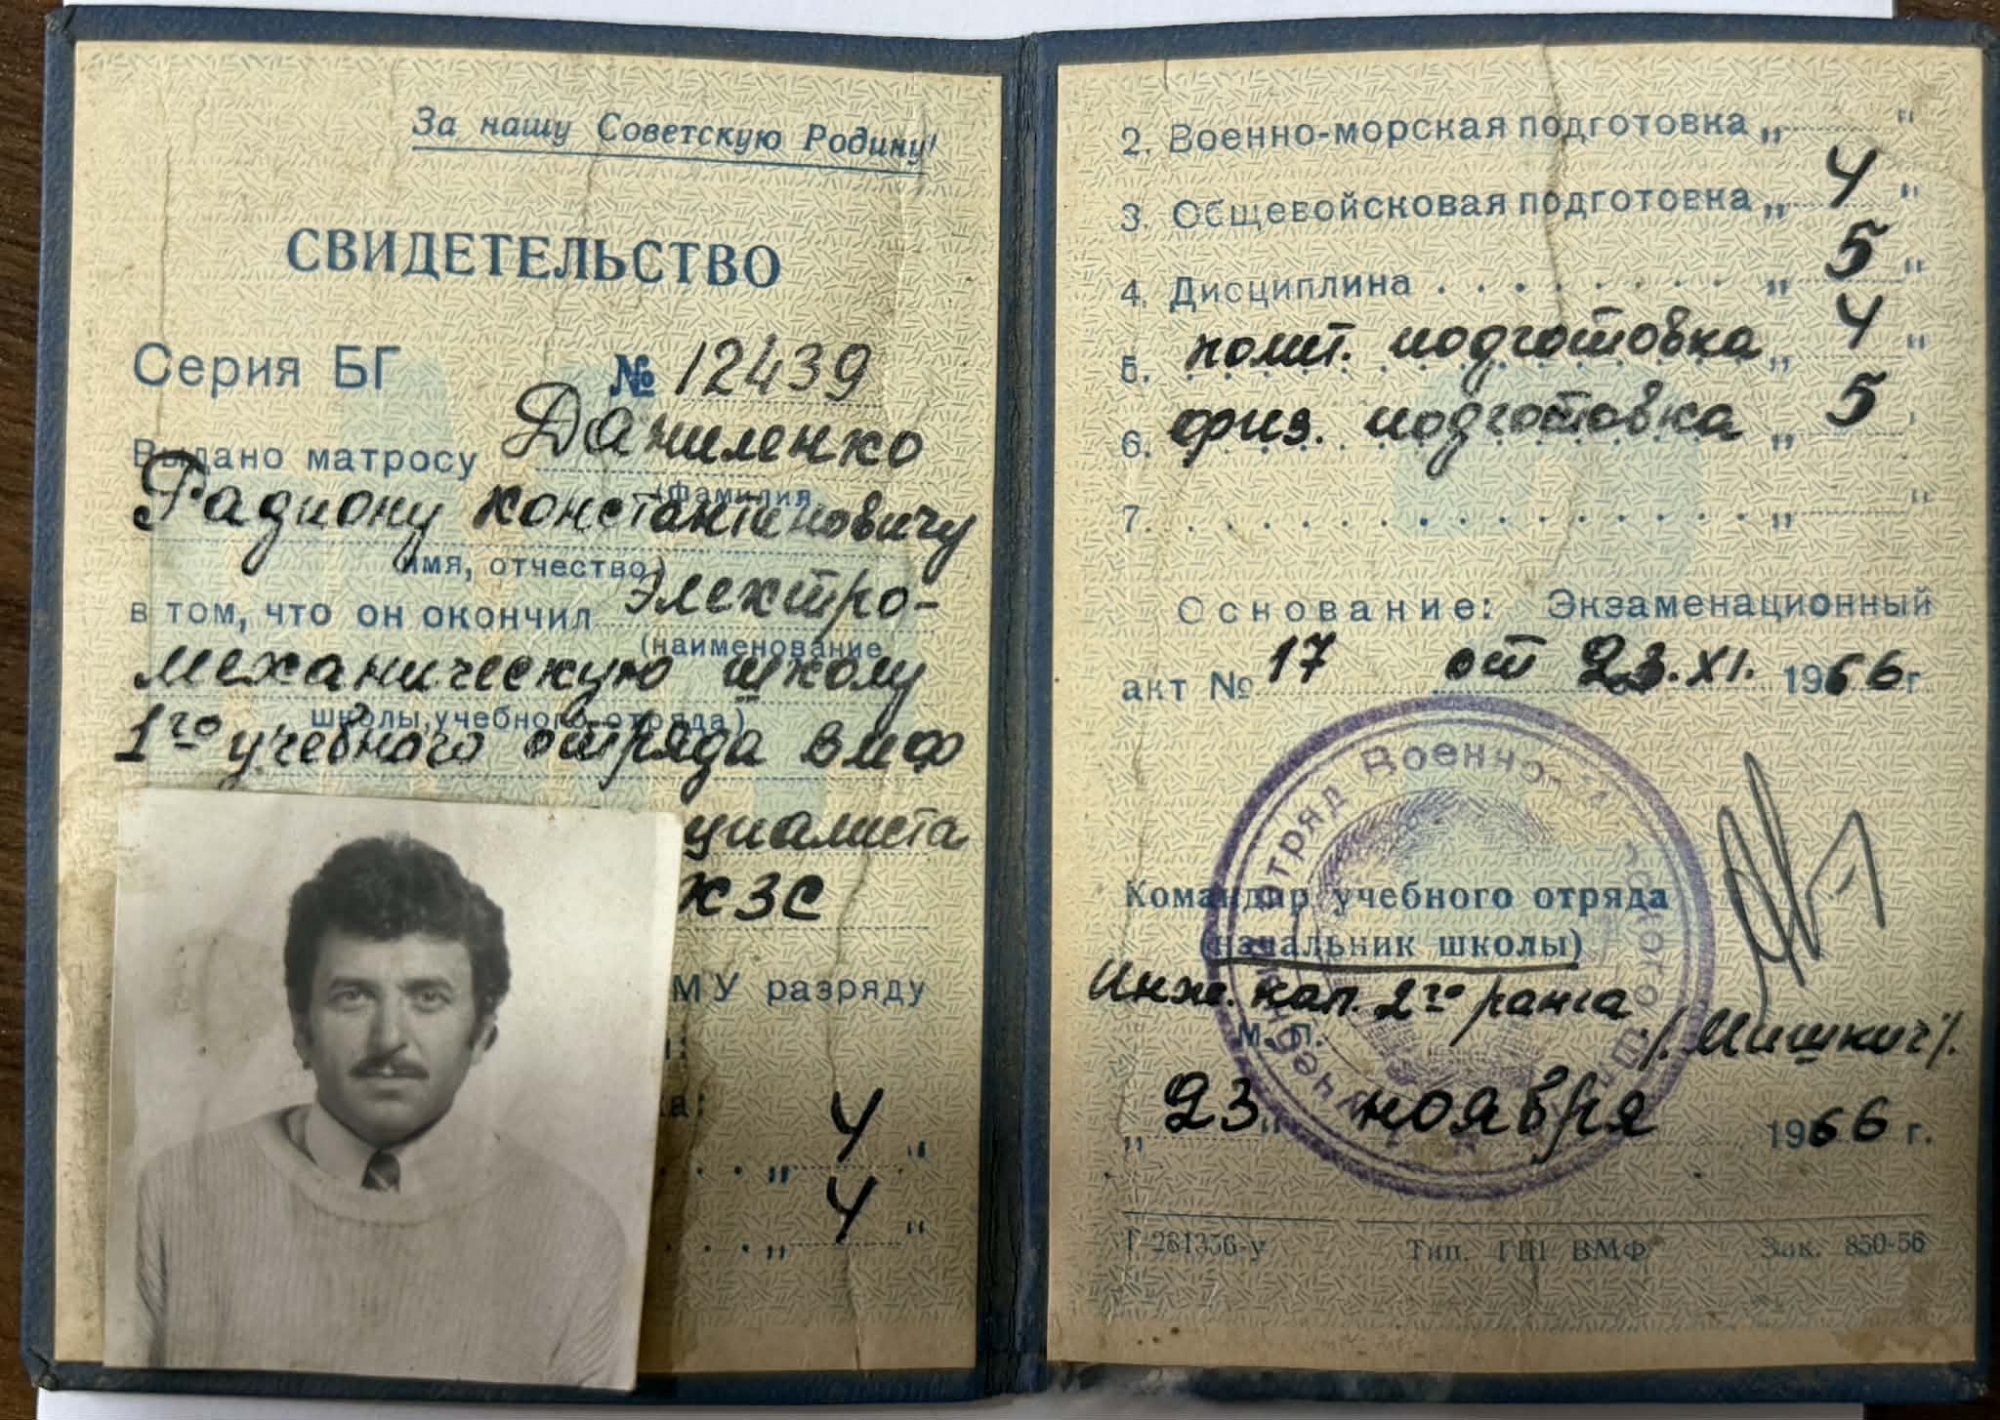 За нашу Советскую Родину!
СВИДЕТЕЛЬСТВО
Серия БГ № 12439
Выдано матросу Даниленко
(фамилия,
Радиону Константиновичу
имя, отчество)
в том, что он окончил Электро-
(наименование
механическую школу
школы, учебного отряда)
1го учебного отряда ВМФ
циалиста
КЗС
МУ разряду
ка:
„ 4 "
„ 4 "
2. Военно-морская подготовка „ "
3. Общевойсковая подготовка „ 4 "
4. Дисциплина „ 5 "
5. полит. подготовка „ 4 "
6. физ. подготовка „ 5 "
7. „ "
Основание: Экзаменационный
акт № 17 от 23.XI. 1966 г.
Командир учебного отряда
(начальник школы)
Инж. кап. 2го ранга
М. П.
/Мишкич/.
„ 23 " ноября 1966 г.
Г-281356-у Тип. ГШ ВМФ Зак. 850-56
Учебный отряд Военно-